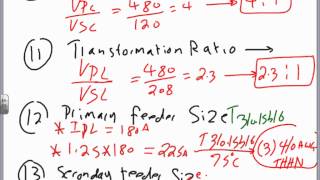 VPC / VSC = 480 / 120 = 4 → 4:1
(11) Transformation Ratio →
VPL / VSL = 480 / 208 = 2.3 → 2.3:1
(12) Primary feeder Size T310.15b16
* IPL = 180A
* 1.25 x 180 = 225A T310.15b16 / 75°C (3) 4/0 AWG THHN
(13) Secondary feeder Size